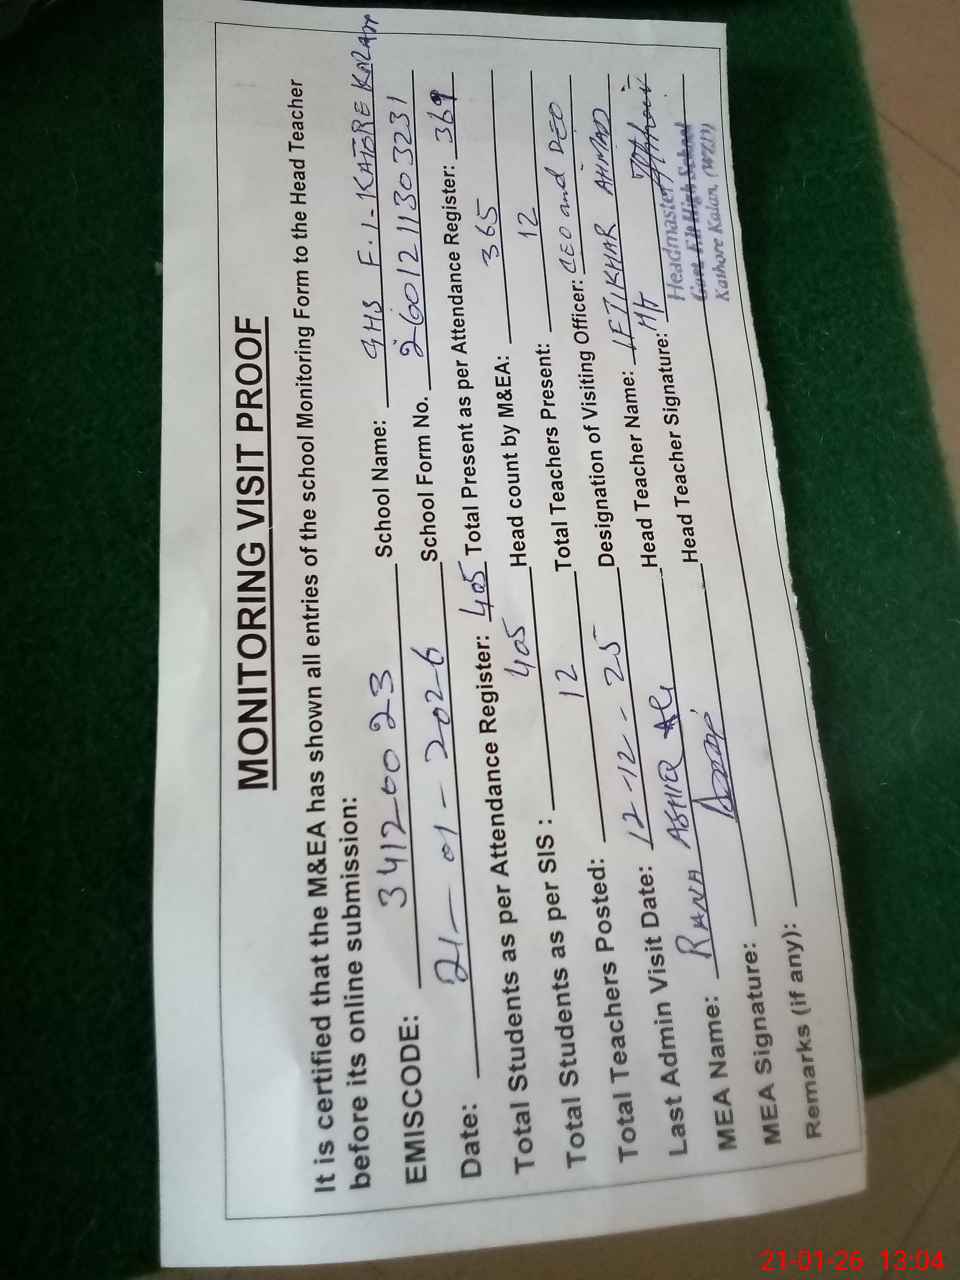 MONITORING VISIT PROOF
It is certified that the M&EA has shown all entries of the school Monitoring Form to the Head Teacher
before its online submission:
EMISCODE: 34120023 School Name: GHS F.I-KATORE KALAN
Date: 21-01-2026 School Form No. 2600121130 3231
Total Students as per Attendance Register: 405 Total Present as per Attendance Register: 369
Total Students as per SIS : 405 Head count by M&EA: 365
Total Teachers Posted: 12 Total Teachers Present: 12
Last Admin Visit Date: 12-12-25 Designation of Visiting Officer: CEO and DEO
MEA Name: RANA ASHIQ ALI Head Teacher Name: IFTIKHAR AHMAD
MEA Signature: Head Teacher Signature:
Remarks (if any):
Headmaster
Govt. High School
Kathore Kalan,
21-01-26 13:04